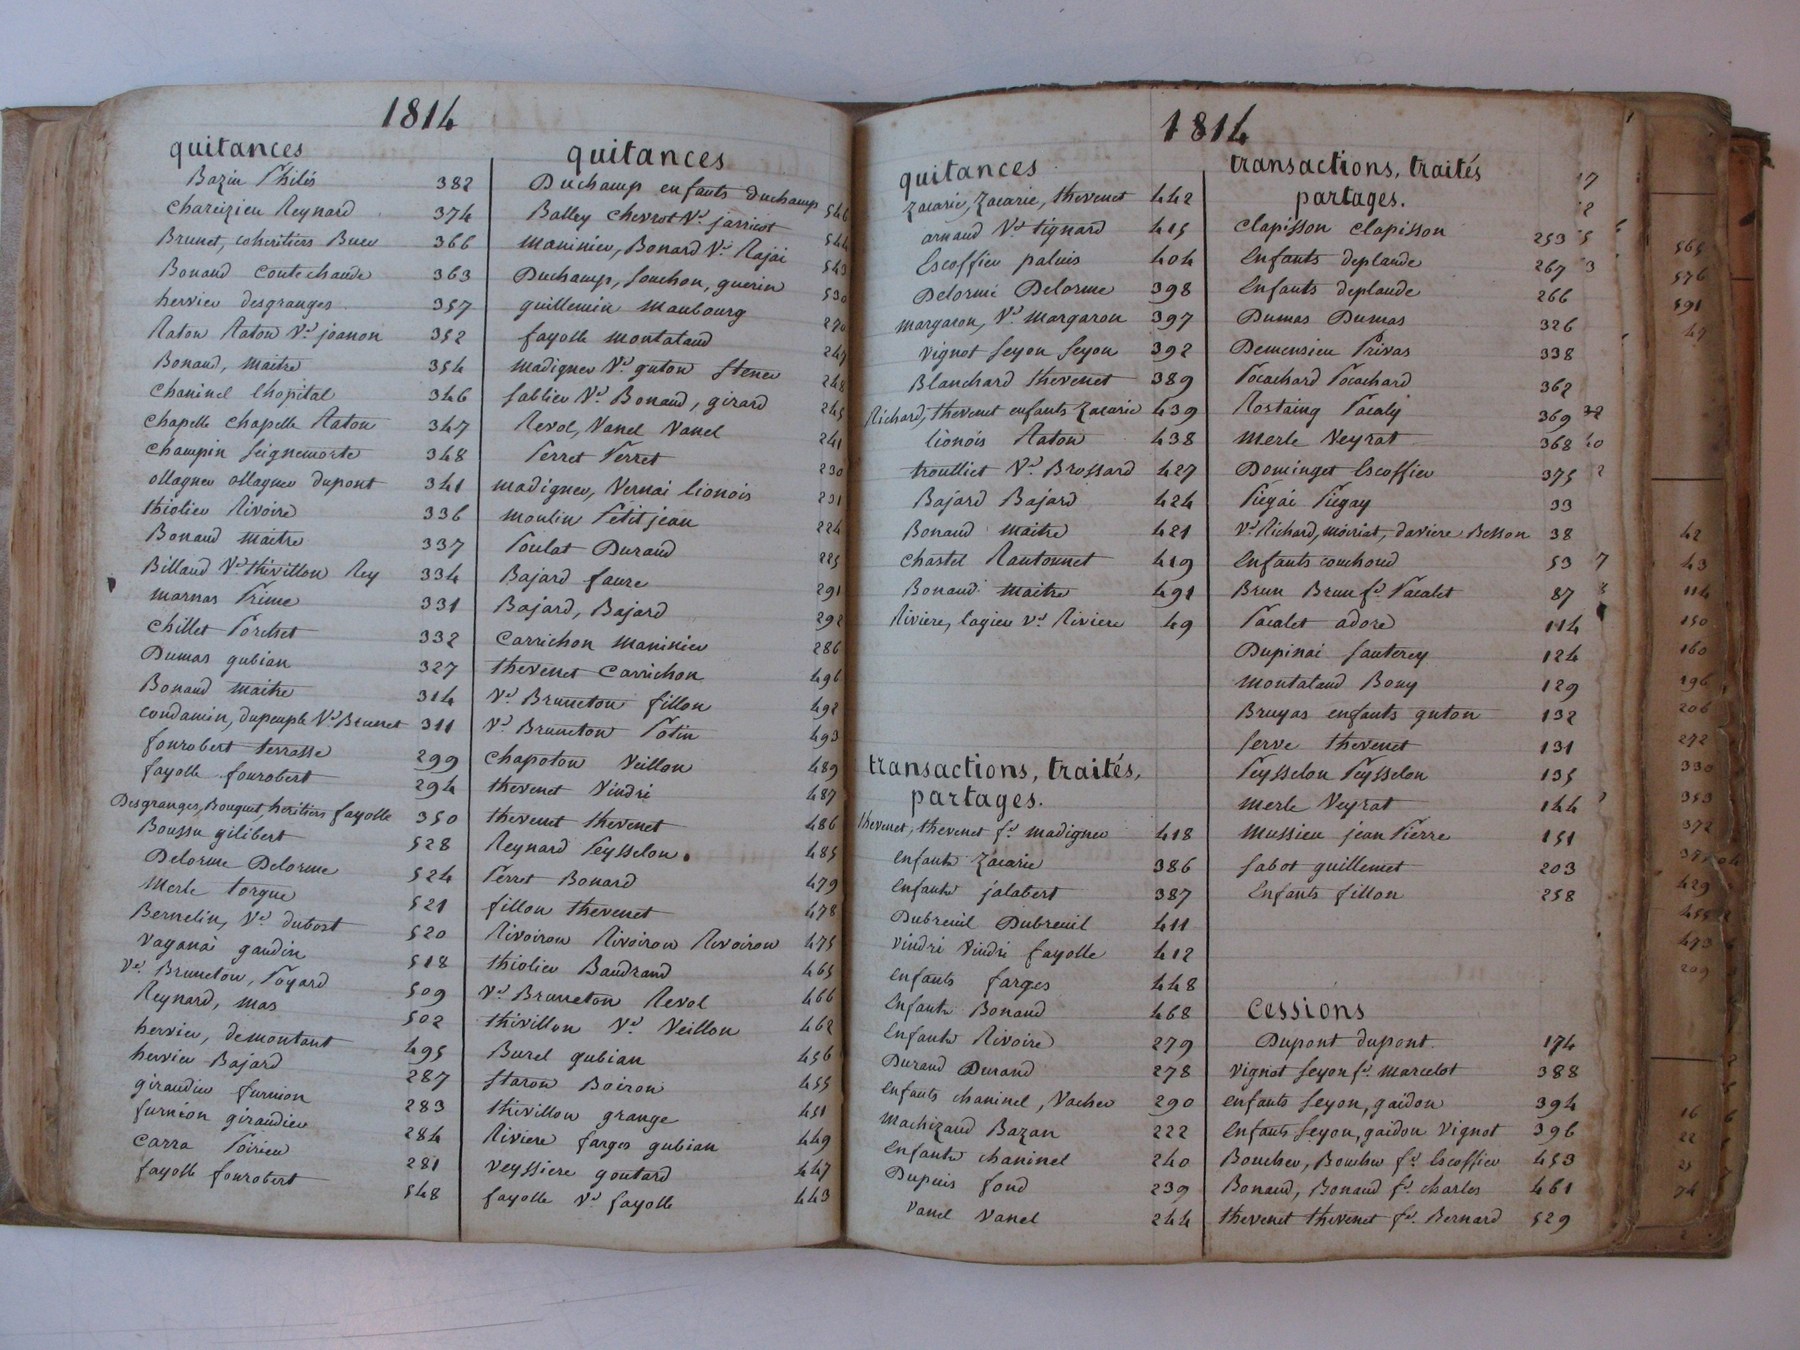 1814
quitances
Bazin Philis 382
Chareizieu Reynard 374
Brunet, coheritiers Buer 366
Bonaud Coutechaude 363
hervier desgranges 357
Raton Raton Ve. joanon 352
Bonaud, maitre 354
Chaninel lhopital 346
Chapelle Chapelle Raton 347
Champin Seignemorte 348
ollagner ollagner dupont 341
thiolier Rivoire 336
Bonaud Maitre 337
Billaud Ve. thivillon Rey 334
marnas Prime 331
Chillet Porchet 332
Dumas gubian 327
Bonaud maitre 314
Condamin, dupeuple Ve. Brunet 311
fourobert terrasse 299
fayolle fourobert 294
Desgranges, Bouquet, heritiers fayolle 350
Boussu gilibert 528
Delorme Delorme 524
Merle torgue 521
Bernelin, Ve. dubost 520
Vaganai gaudin 518
Ve. Bruneton, Poyard 509
Reynard, mas 502
hervier, demontant 495
hervier Bajard 287
giraudier furnion 283
furnion giraudier 284
Carra Poirieu 281
fayolle fourobert 548
quitances
Duchamp enfants duchamp 546
Balley Chevrot Ve. jarricot 544
Maninier, Bonard Ve. Rajai 543
Duchamp, Souchon, guerin 530
guillemin Maubourg 270
fayolle montaland 249
madigner Ve. guton Stener 248
Sablier Ve. Bonaud, girard 245
Revol, Vanel Vanel 241
Perret Perret 230
madigner, Vernai lionois 231
moulin Petit jean 224
Poulat Durand 225
Bajard faure 291
Bajard, Bajard 292
Carrichon Maninier 286
thevenet Carrichon 496
Ve. Bruneton fillon 492
Ve. Bruneton Potin 493
Chapoton Veillon 489
thevenet Vindri 487
thevenet thevenet 486
Reynard Peysselon 485
Perret Bonard 479
fillon thevenet 478
Rivoiron Rivoiron Rivoiron 475
thiolier Baudrand 465
Ve. Bruneton Revol 466
thivillon Ve. Veillon 462
Burel gubian 456
Staron Boiron 455
thivillon grange 451
Riviere farges gubian 449
Veyssiere goutard 447
fayolle Ve. fayolle 443
1814
quitances
Zacarie, Zacarie, thevenet 442
arnaud Ve. tignard 415
Escoffier paluis 404
Delorme Delorme 398
margaron, Ve. Margaron 397
Vignot Seyon Seyon 392
Blanchard thevenet 389
Richard, thevenet enfants Zacarie 439
lionois Raton 438
troulliet Ve. Brossard 427
Bajard Bajard 424
Bonaud maitre 421
Chastel Rantonnet 419
Bonaud maitre 491
Riviere, lagier Ve. Riviere 49
transactions, traités,
partages.
thevenet, thevenet fe. Madigner 418
enfants Zacarie 386
enfants jalabert 387
Dubreuil Dubreuil 411
Vindri Vindri fayolle 412
enfants farges 448
enfants Bonaud 468
enfants Rivoire 279
Durand Durand 278
enfants chaninel, Vacher 290
Machizaud Bazan 222
enfants chaninel 240
Dupuis fond 239
Vanel Vanel 244
transactions, traités
partages.
Clapisson Clapisson 253
Enfants deplaude 267
Enfants deplaude 266
Dumas Dumas 326
Demensieu Privas 338
Pocachard Pocachard 362
Rostaing Pacaly 369
Merle Veyrat 368
Dominget Escoffier 375
Piégai Piégay 33
Ve. Richard, moiriat, daviere Besson 38
Enfants couchoud 53
Brun Brun fe. Pacalet 87
Pacalet adore 114
Dupinai Sauterey 124
Montaland Bony 129
Bruyas enfants guton 132
Serve thevenet 131
Peysselon Peysselon 135
Merle Veyrat 144
Mussieu jean Pierre 151
Sabot guillemet 203
Enfants fillon 258
Cessions
Dupont dupont 174
Vignot Seyon fe. Marcelot 388
enfants Seyon, gaidon 394
Enfants Seyon, gaidon Vignot 396
Boucher, Boucher fe. Escoffier 453
Bonaud, Bonaud fe. charles 461
thevenet thevenet fe. Bernard 529
565
576
591
42
43
114
150
160
196
206
272
330
353
372
429